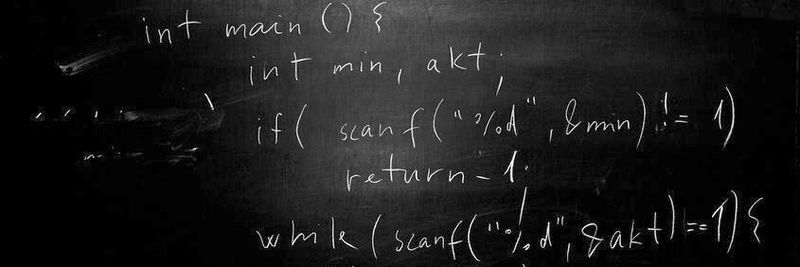 int main () {
int min, akt;
if( scanf("%d", &min) != 1)
return -1;
while (scanf("%d", &akt)==1) {